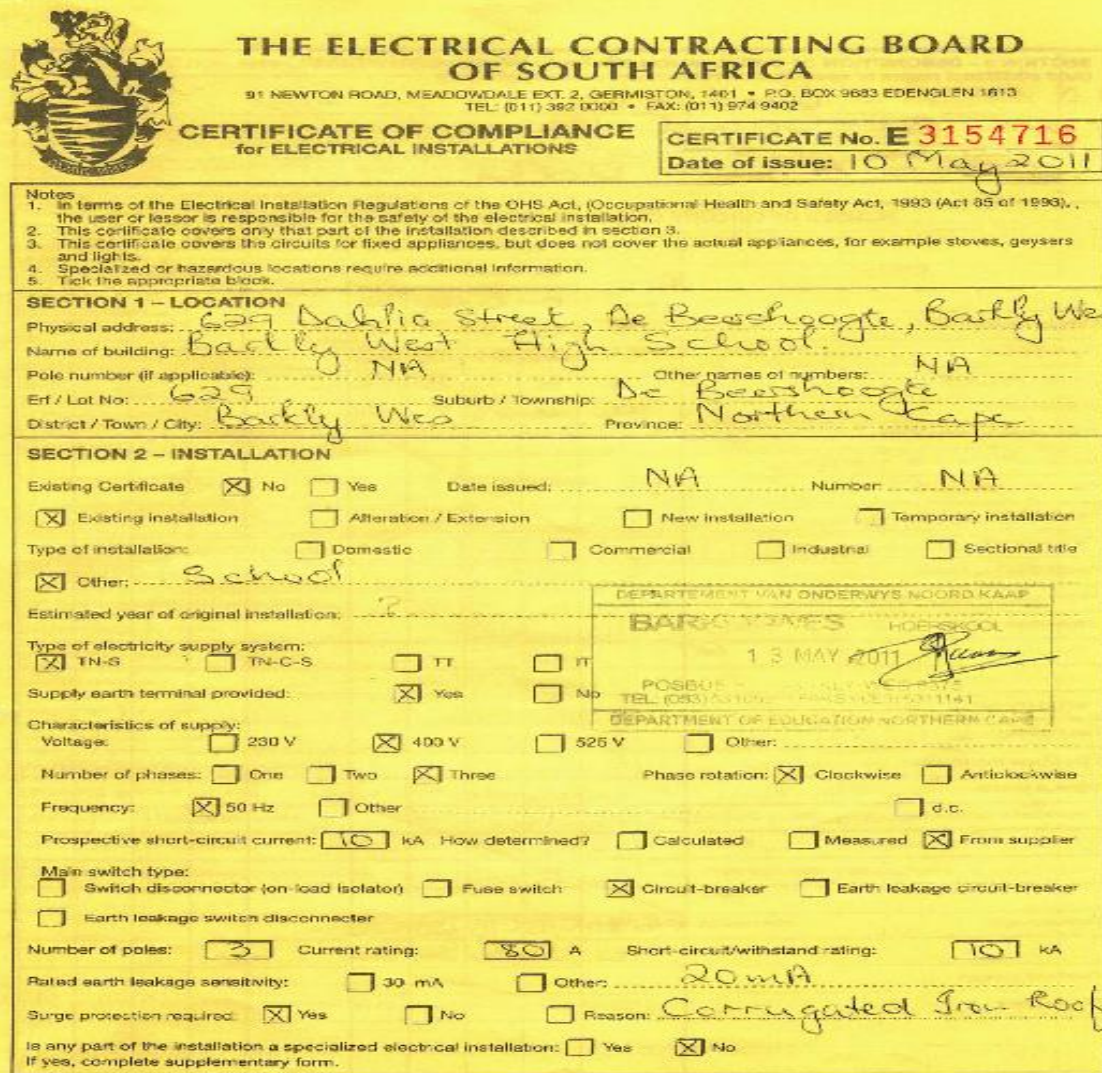 THE ELECTRICAL CONTRACTING BOARD
OF SOUTH AFRICA
91 NEWTON ROAD, MEADOWDALE EXT. 2, GERMISTON, 1401 • P.O. BOX 9683 EDENGLEN 1613
TEL: (011) 392 0000 • FAX: (011) 974 9402
CERTIFICATE OF COMPLIANCE
for ELECTRICAL INSTALLATIONS
CERTIFICATE No. E 3154716
Date of issue: 10 May 2011
Notes
1. In terms of the Electrical Installation Regulations of the OHS Act, (Occupational Health and Safety Act, 1993 (Act 85 of 1993), ,
the user or lessor is responsible for the safety of the electrical installation.
2. This certificate covers only that part of the installation described in section 3.
3. This certificate covers the circuits for fixed appliances, but does not cover the actual appliances, for example stoves, geysers
and lights.
4. Specialized or hazardous locations require additional information.
5. Tick the appropriate block.
SECTION 1 – LOCATION
Physical address: 629 Dahlia Street, De Beershoogte, Barkly Wes
Name of building: Barkly West High School.
Pole number (if applicable): NA Other names of numbers: NA
Erf / Lot No: 629 Suburb / Township: De Beershoogte
District / Town / City: Barkly Wes Province: Northern Cape
SECTION 2 – INSTALLATION
Existing Certificate No Yes Date issued: NA Number: NA
Existing installation Alteration / Extension New installation Temporary installation
Type of installation: Domestic Commercial Industrial Sectional title
Other: School
Estimated year of original installation: ?
DEPARTEMENT VAN ONDERWYS NOORD KAAP
HOERSKOOL
Type of electricity supply system:
TN-S TN-C-S TT IT
13 MAY 2011
Supply earth terminal provided: Yes No
DEPARTMENT OF EDUCATION NORTHERN CAPE
Characteristics of supply:
Voltage: 230 V 400 V 525 V Other:
Number of phases: One Two Three Phase rotation: Clockwise Anticlockwise
Frequency: 50 Hz Other d.c.
Prospective short-circuit current: 10 kA How determined? Calculated Measured From supplier
Main switch type:
Switch disconnector (on-load isolator) Fuse switch Circuit-breaker Earth leakage circuit-breaker
Earth leakage switch disconnecter
Number of poles: 3 Current rating: 80 A Short-circuit/withstand rating: 10 kA
Rated earth leakage sensitivity: 30 mA Other: 20mA
Surge protection required: Yes No Reason: Corrugated Iron Roof
Is any part of the installation a specialized electrical installation: Yes No
If yes, complete supplementary form.